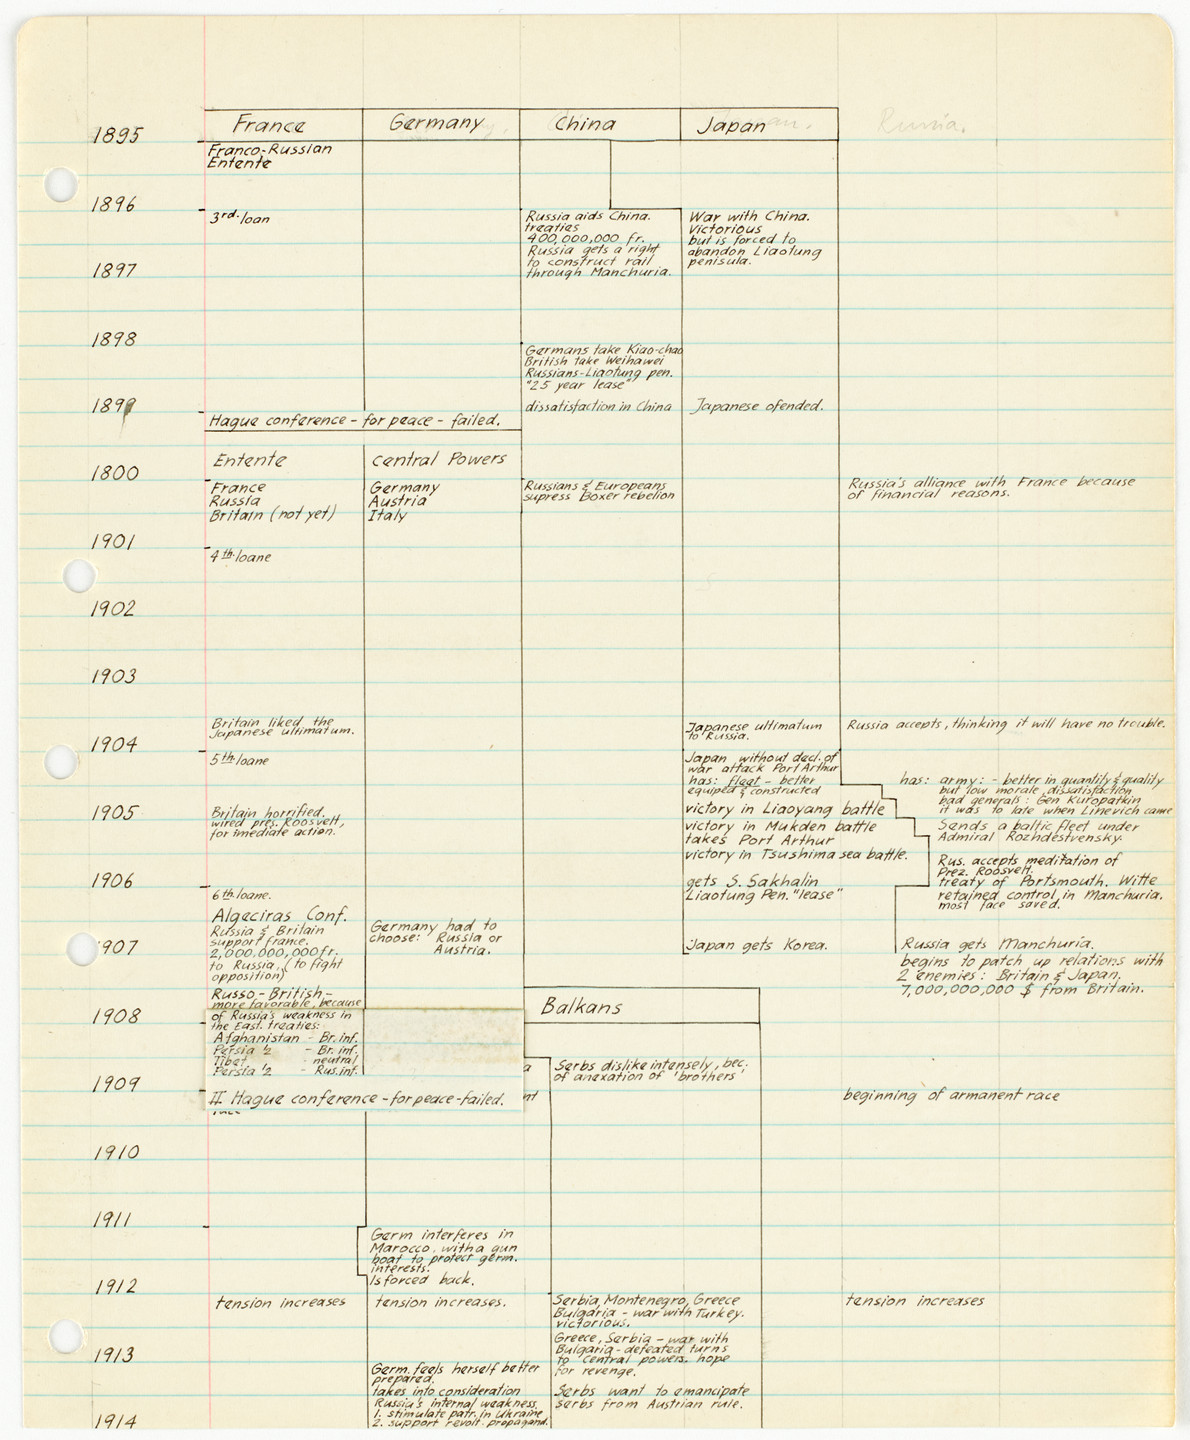 France Germany China Japan Russia.
1895
Franco-Russian
Entente
1896
3rd. loan
Russia aids China.
treaties
400,000,000 fr.
Russia gets a right
to construct rail
through Manchuria.
War with China.
Victorious
but is forced to
abandon Liaotung
penisula.
1897
1898
Germans take Kiao-chao
British take Weihawei
Russians-Liaotung pen.
"25 year lease"
1899
dissatisfaction in China
Japanese ofended.
Hague conference - for peace - failed.
Entente
Central Powers
1800
France
Russia
Britain (not yet)
Germany
Austria
Italy
Russians & Europeans
supress Boxer rebelion
Russia's alliance with France because
of financial reasons.
1901
4th. loane
1902
1903
Britain liked the
Japanese ultimatum.
Japanese ultimatum
to Russia.
Russia accepts, thinking it will have no trouble.
1904
5th. loane
Japan without decl. of
war attack Port Arthur
has: fleet - better
equiped & constructed
has: army: - better in quantity & quality
but low morale, dissatisfaction
bad generals: Gen Kuropatkin
it was to late when Linevich came
1905
Britain horrified.
wired pres. Roosvelt,
for imediate action.
victory in Liaoyang battle
victory in Mukden battle
takes Port Arthur
victory in Tsushima sea battle.
Sends a baltic fleet under
Admiral Rozhdestvensky.
Rus. accepts meditation of
Prez. Roosvelt.
treaty of Portsmouth. Witte
retained control in Manchuria.
most face saved.
1906
gets S. Sakhalin
Liaotung Pen. "lease"
6th. loane.
Algeciras Conf.
Russia & Britain
support france.
2,000,000,000 fr.
to Russia, (to fight
opposition)
Germany had to
choose: Russia or
Austria.
1907
Japan gets Korea.
Russia gets Manchuria.
begins to patch up relations with
2 enemies: Britain & Japan.
7,000,000,000 $ from Britain.
Russo-British-
more favorable, because
of Russia's weakness in
the East. treaties:
Afghanistan - Br. inf.
Persia ½ - Br. inf.
Tibet - neutral
Persia ½ - Rus. inf.
1908
Balkans
Serbs dislike intensely, bec.
of anexation of 'brothers'
1909
II Hague conference - for peace - failed.
beginning of armanent race
1910
1911
Germ interferes in
Marocco, with a gun
boat to protect germ.
interests.
Is forced back.
1912
tension increases
tension increases.
Serbia, Montenegro, Greece
Bulgaria - war with Turkey.
victorious.
tension increases
Greece, Serbia - war with
Bulgaria - defeated turns
to central powers. hope
for revenge.
1913
Germ. feels herself better
prepared.
takes into consideration
Russia's internal weakness
1. stimulate patr. in Ukraine
2. support revolt. propagand.
Serbs want to emancipate
serbs from Austrian rule.
1914